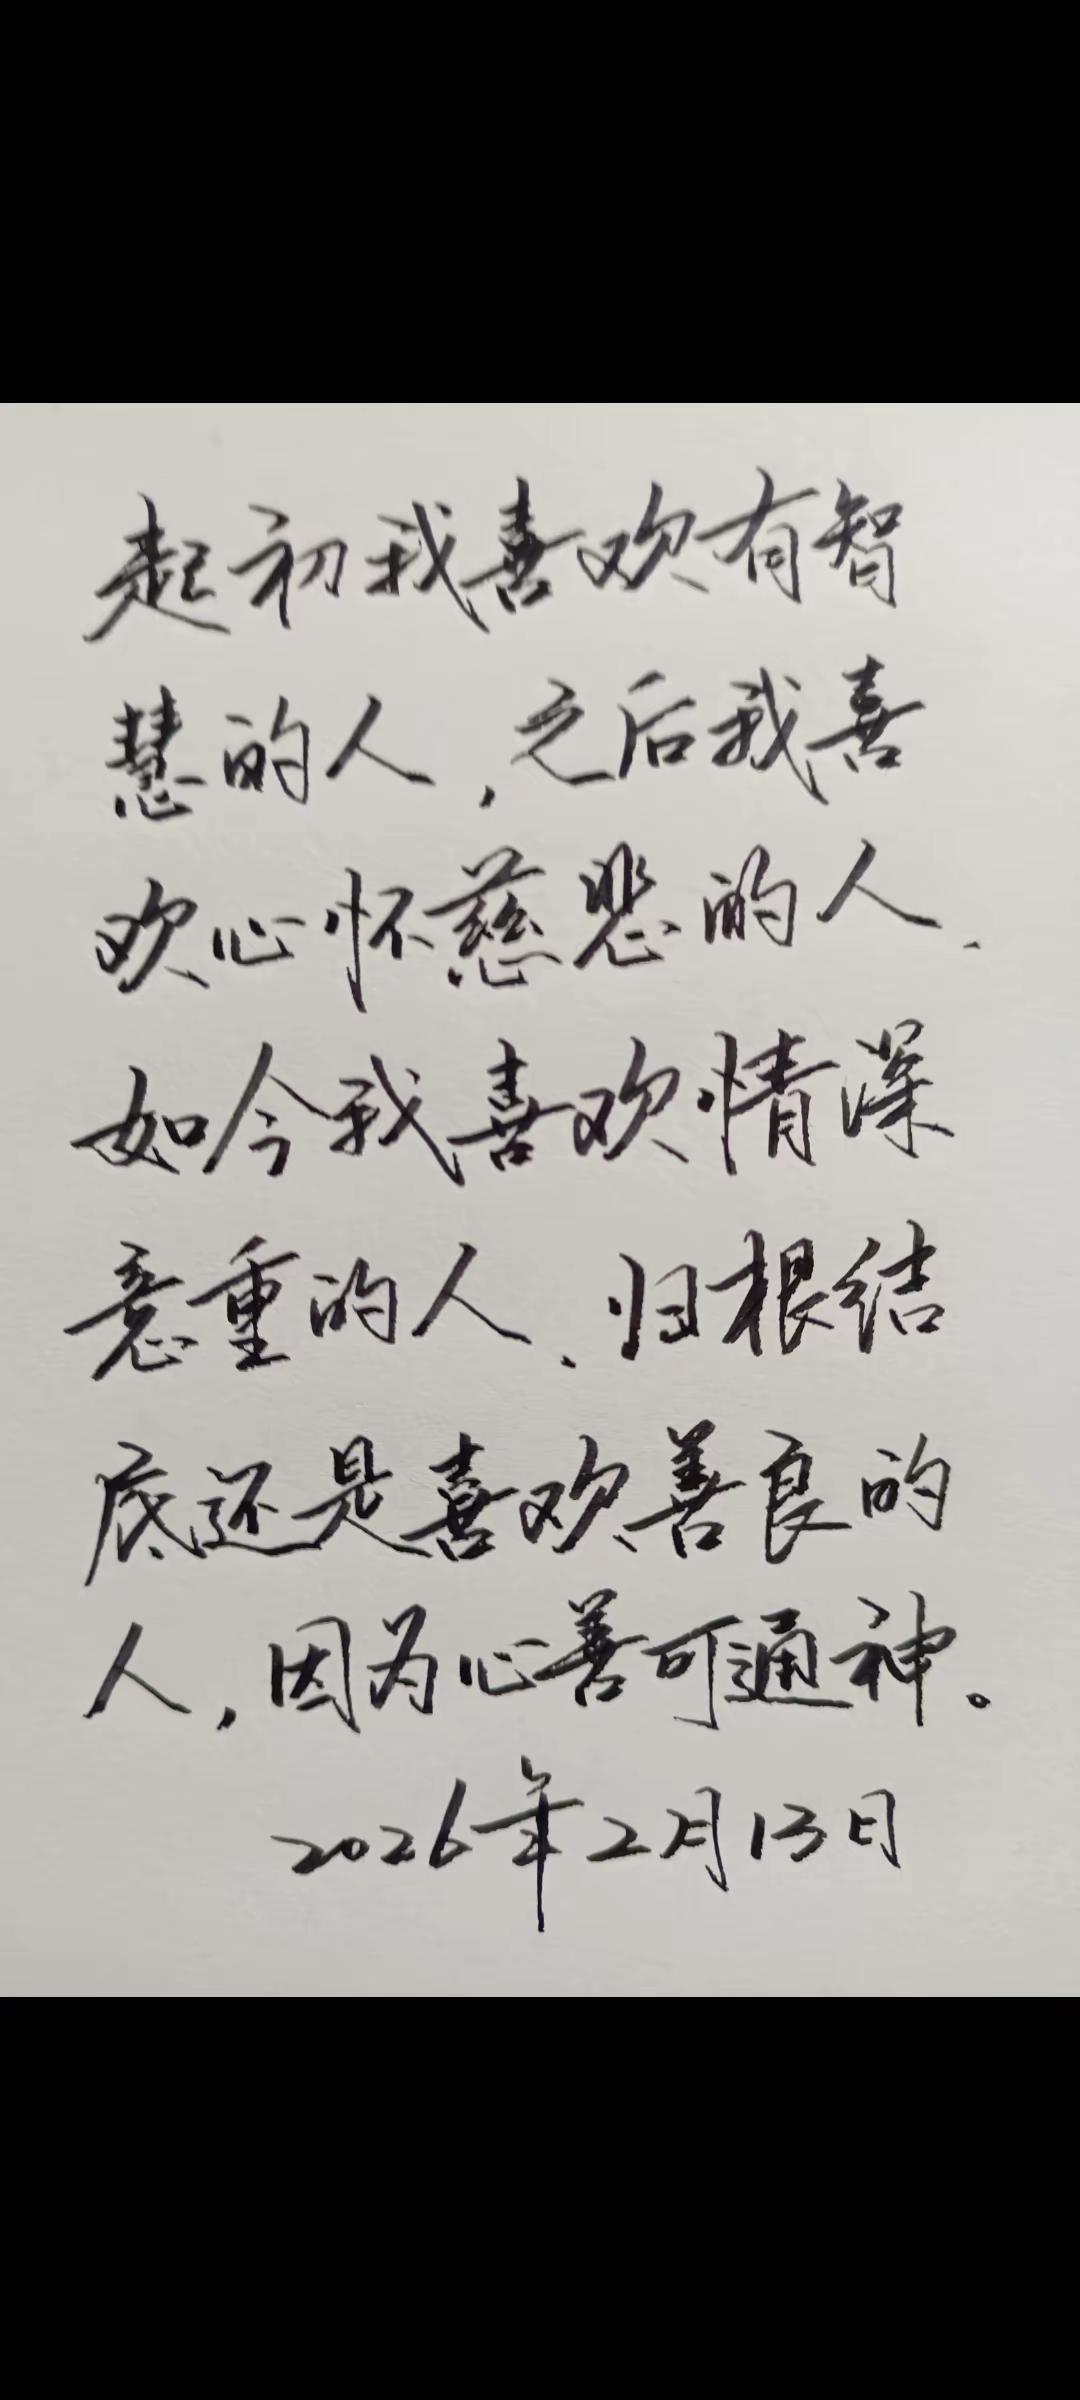 起初我喜欢有智
慧的人，之后我喜
欢心怀慈悲的人、
如今我喜欢情深
意重的人、归根结
底还是喜欢善良的
人，因为心善可通神。
2026年2月13日